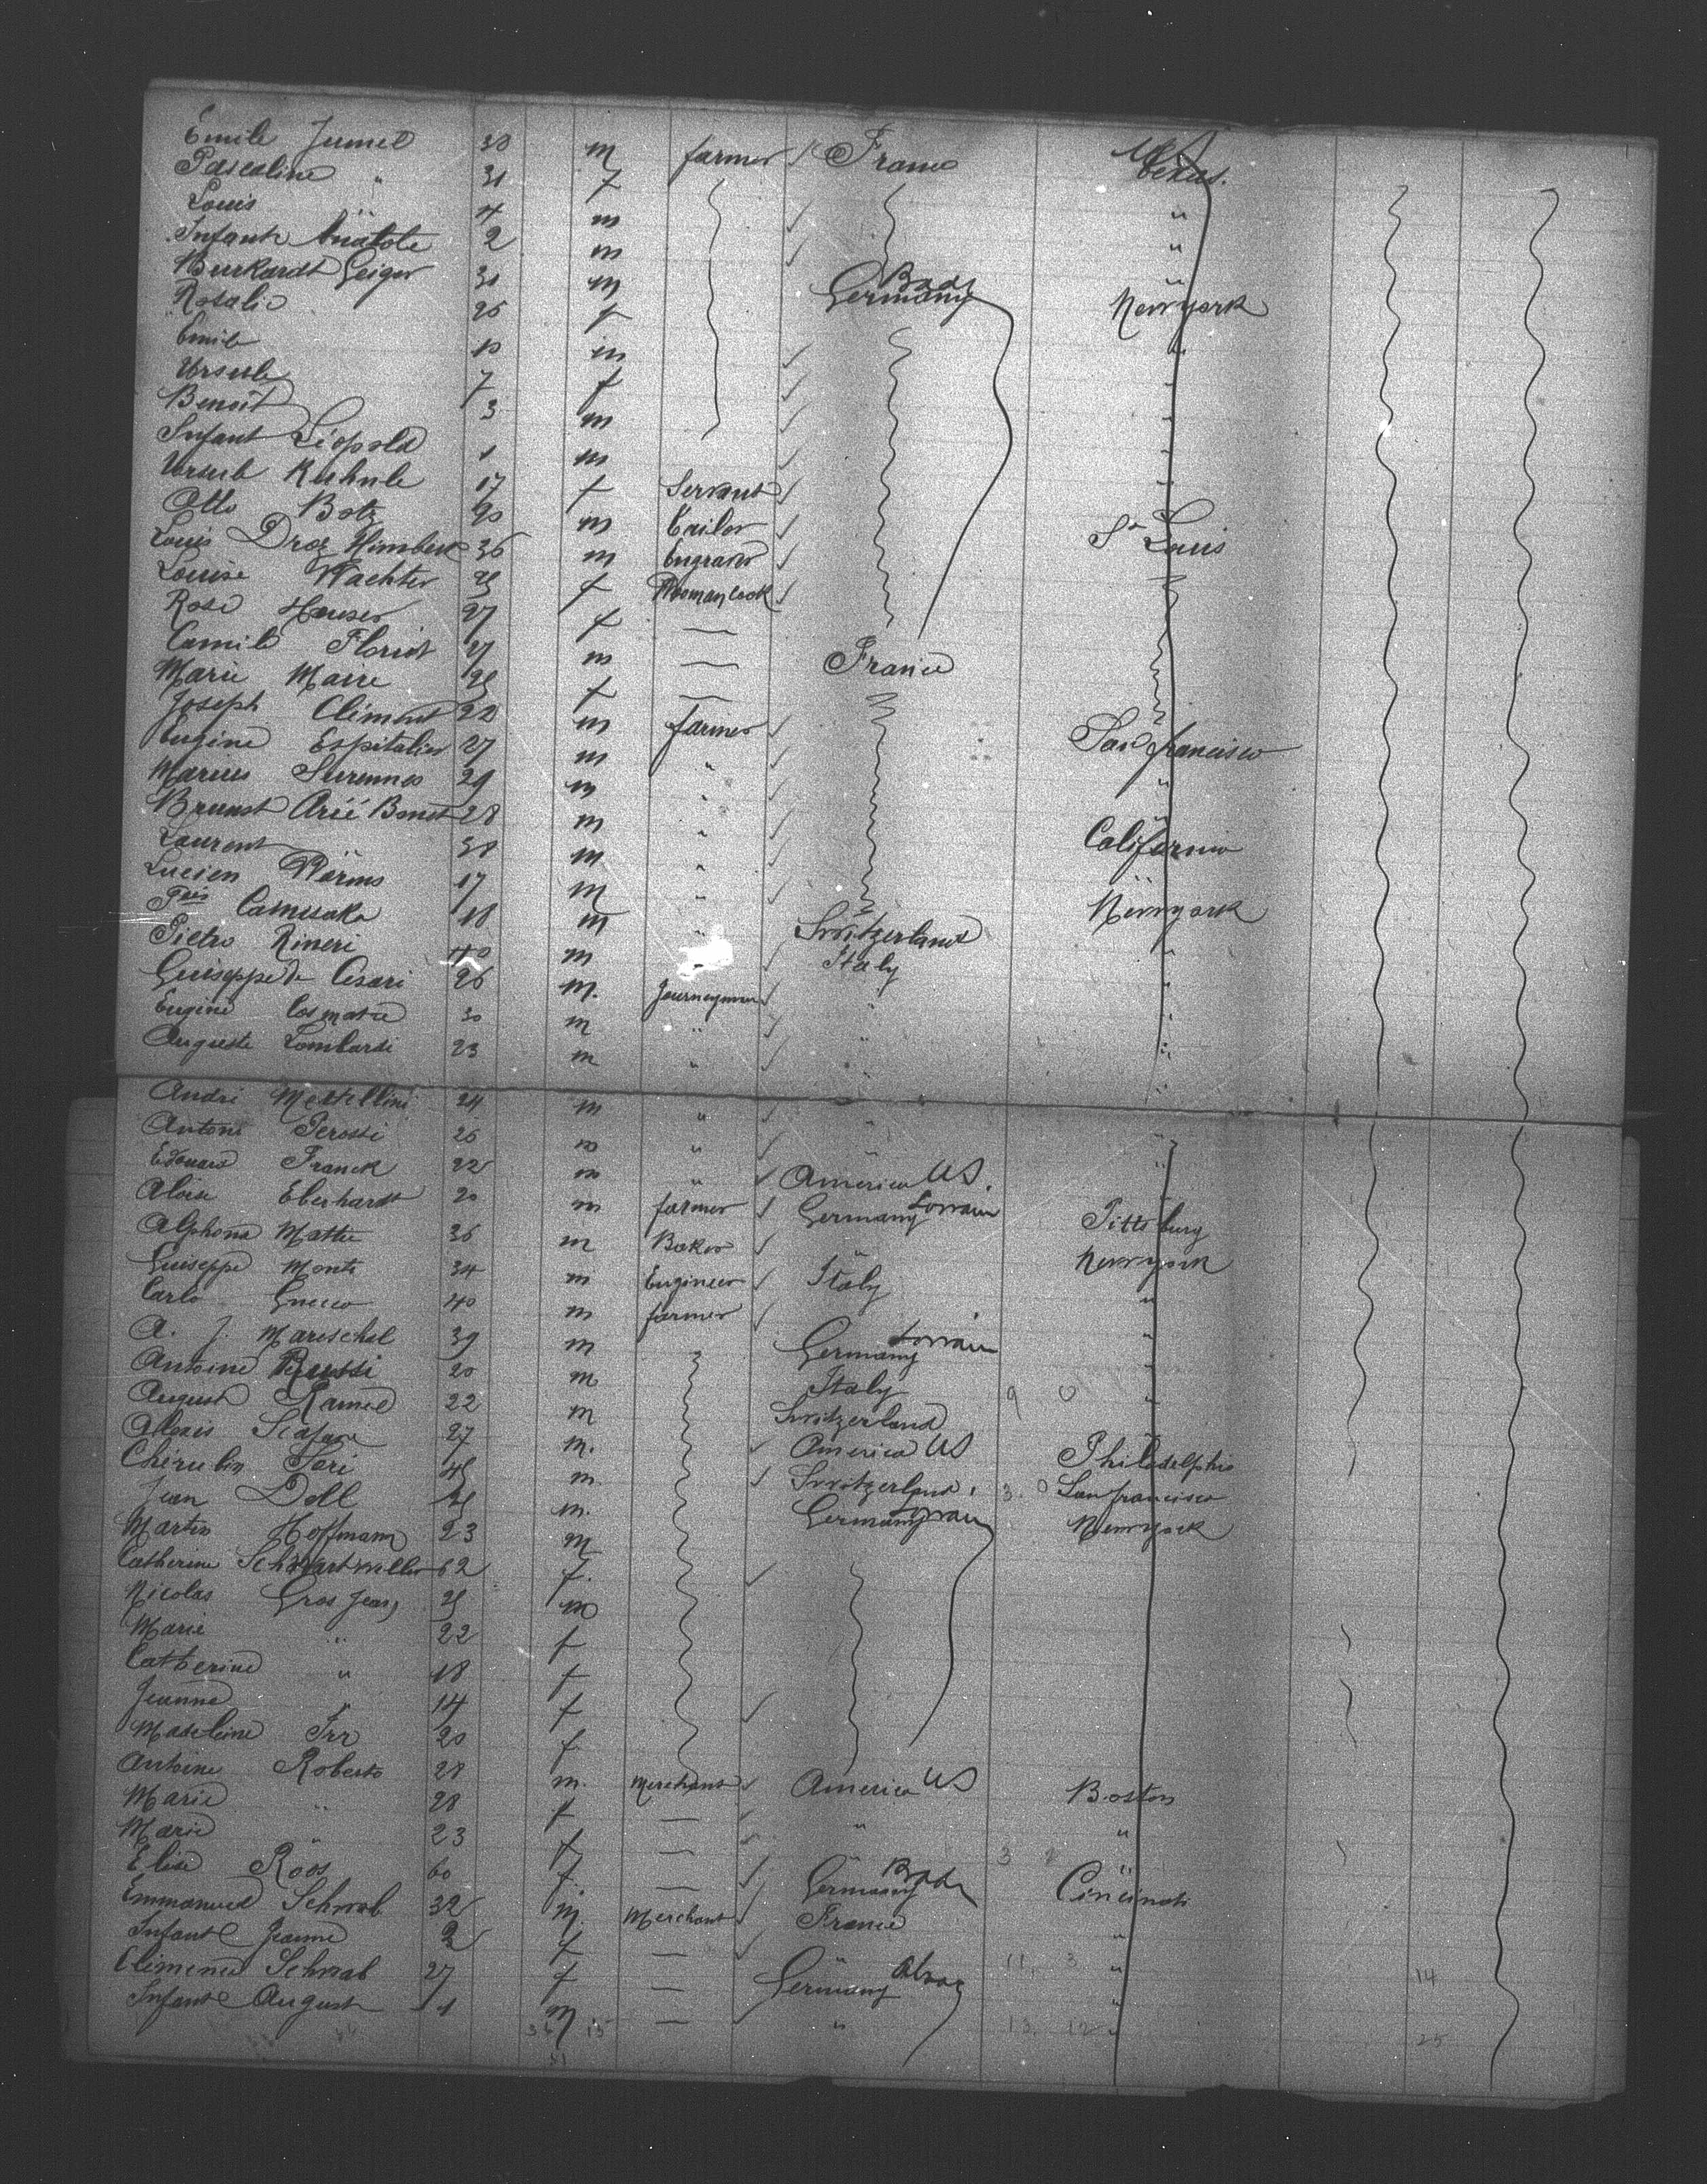 Emile Jumel 30 m farmer France US Texas.
Pascaline " 31 f
Louis 4 m "
Infante Anatole 2 m "
Burkardt Geiger 31 m Germany Bade "
Rosalie 26 f Newyork
Emile 10 m "
Ursule 7 f "
Benoit 3 m "
Infant Léopold 1 m "
Ursule Kuhnle 17 f Servant "
Otto Botz 20 m Tailor St Louis
Louis Droz Himbert 36 m Engraver
Louise Wachter 25 f Woman cook
Rose Hauser 27 f —
Camile Floriot 27 m — France
Marie Maire 25 f —
Joseph Clément 22 m farmer
Eugine Espitalier 27 m " San francisco
Marius Surennes 29 m " "
Brunet Arié Bonet 28 m " "
Laurent 38 m " California
Lucien Worms 17 m " "
Camesaka 18 m " Switzerland Newyork
Pietro Rineri 40 m " Italy "
Guiseppe de Cesari 26 m. Journeyman " "
Eugine Cosmatie 30 m " " "
Auguste Lombardi 23 m " " "
Andre Mestellini 24 m " " "
Antoni Perossi 26 m " " "
Edouard Franck 22 m " America US. "
Aloise Eberhardt 20 m farmer Germany Lorrain "
Alphons Mattie 36 m Baker " Pittsburg
Guiseppe Monti 34 m Engineer Italy Newyork
Carlo Grecco 40 m farmer "
A. J. Mareschal 39 m Germany Lorrain "
Antoine Russi 20 m Italy "
August Ramel 22 m Switzerland "
Alexis Scafare 27 m. America US "
Chérubin Tori 45 m. Switzerland. Philadelphia
Jean Doll 25 m. Germany Lorrain San francisco
Martin Hoffmann 23 m Newyork
Catherine Schwartzmiller 62 f.
Nicolas Gros Jean 25 m
Marie " 22 f
Catherine " 18 f
Jeanne " 14 f
Madeleine Irr 20 f
Antoine Roberto 28 m. Merchant America US Boston
Marie " 28 f — "
Marie " 23 f — " "
Elise Roos 60 f. — Germany Bade "
Emmanuel Schwab 32 m. Merchant France Cincinati
Infant Jeanne 2 f — "
Clémence Schwab 27 f — Germany Alsac "
Infant August 1 m — " "